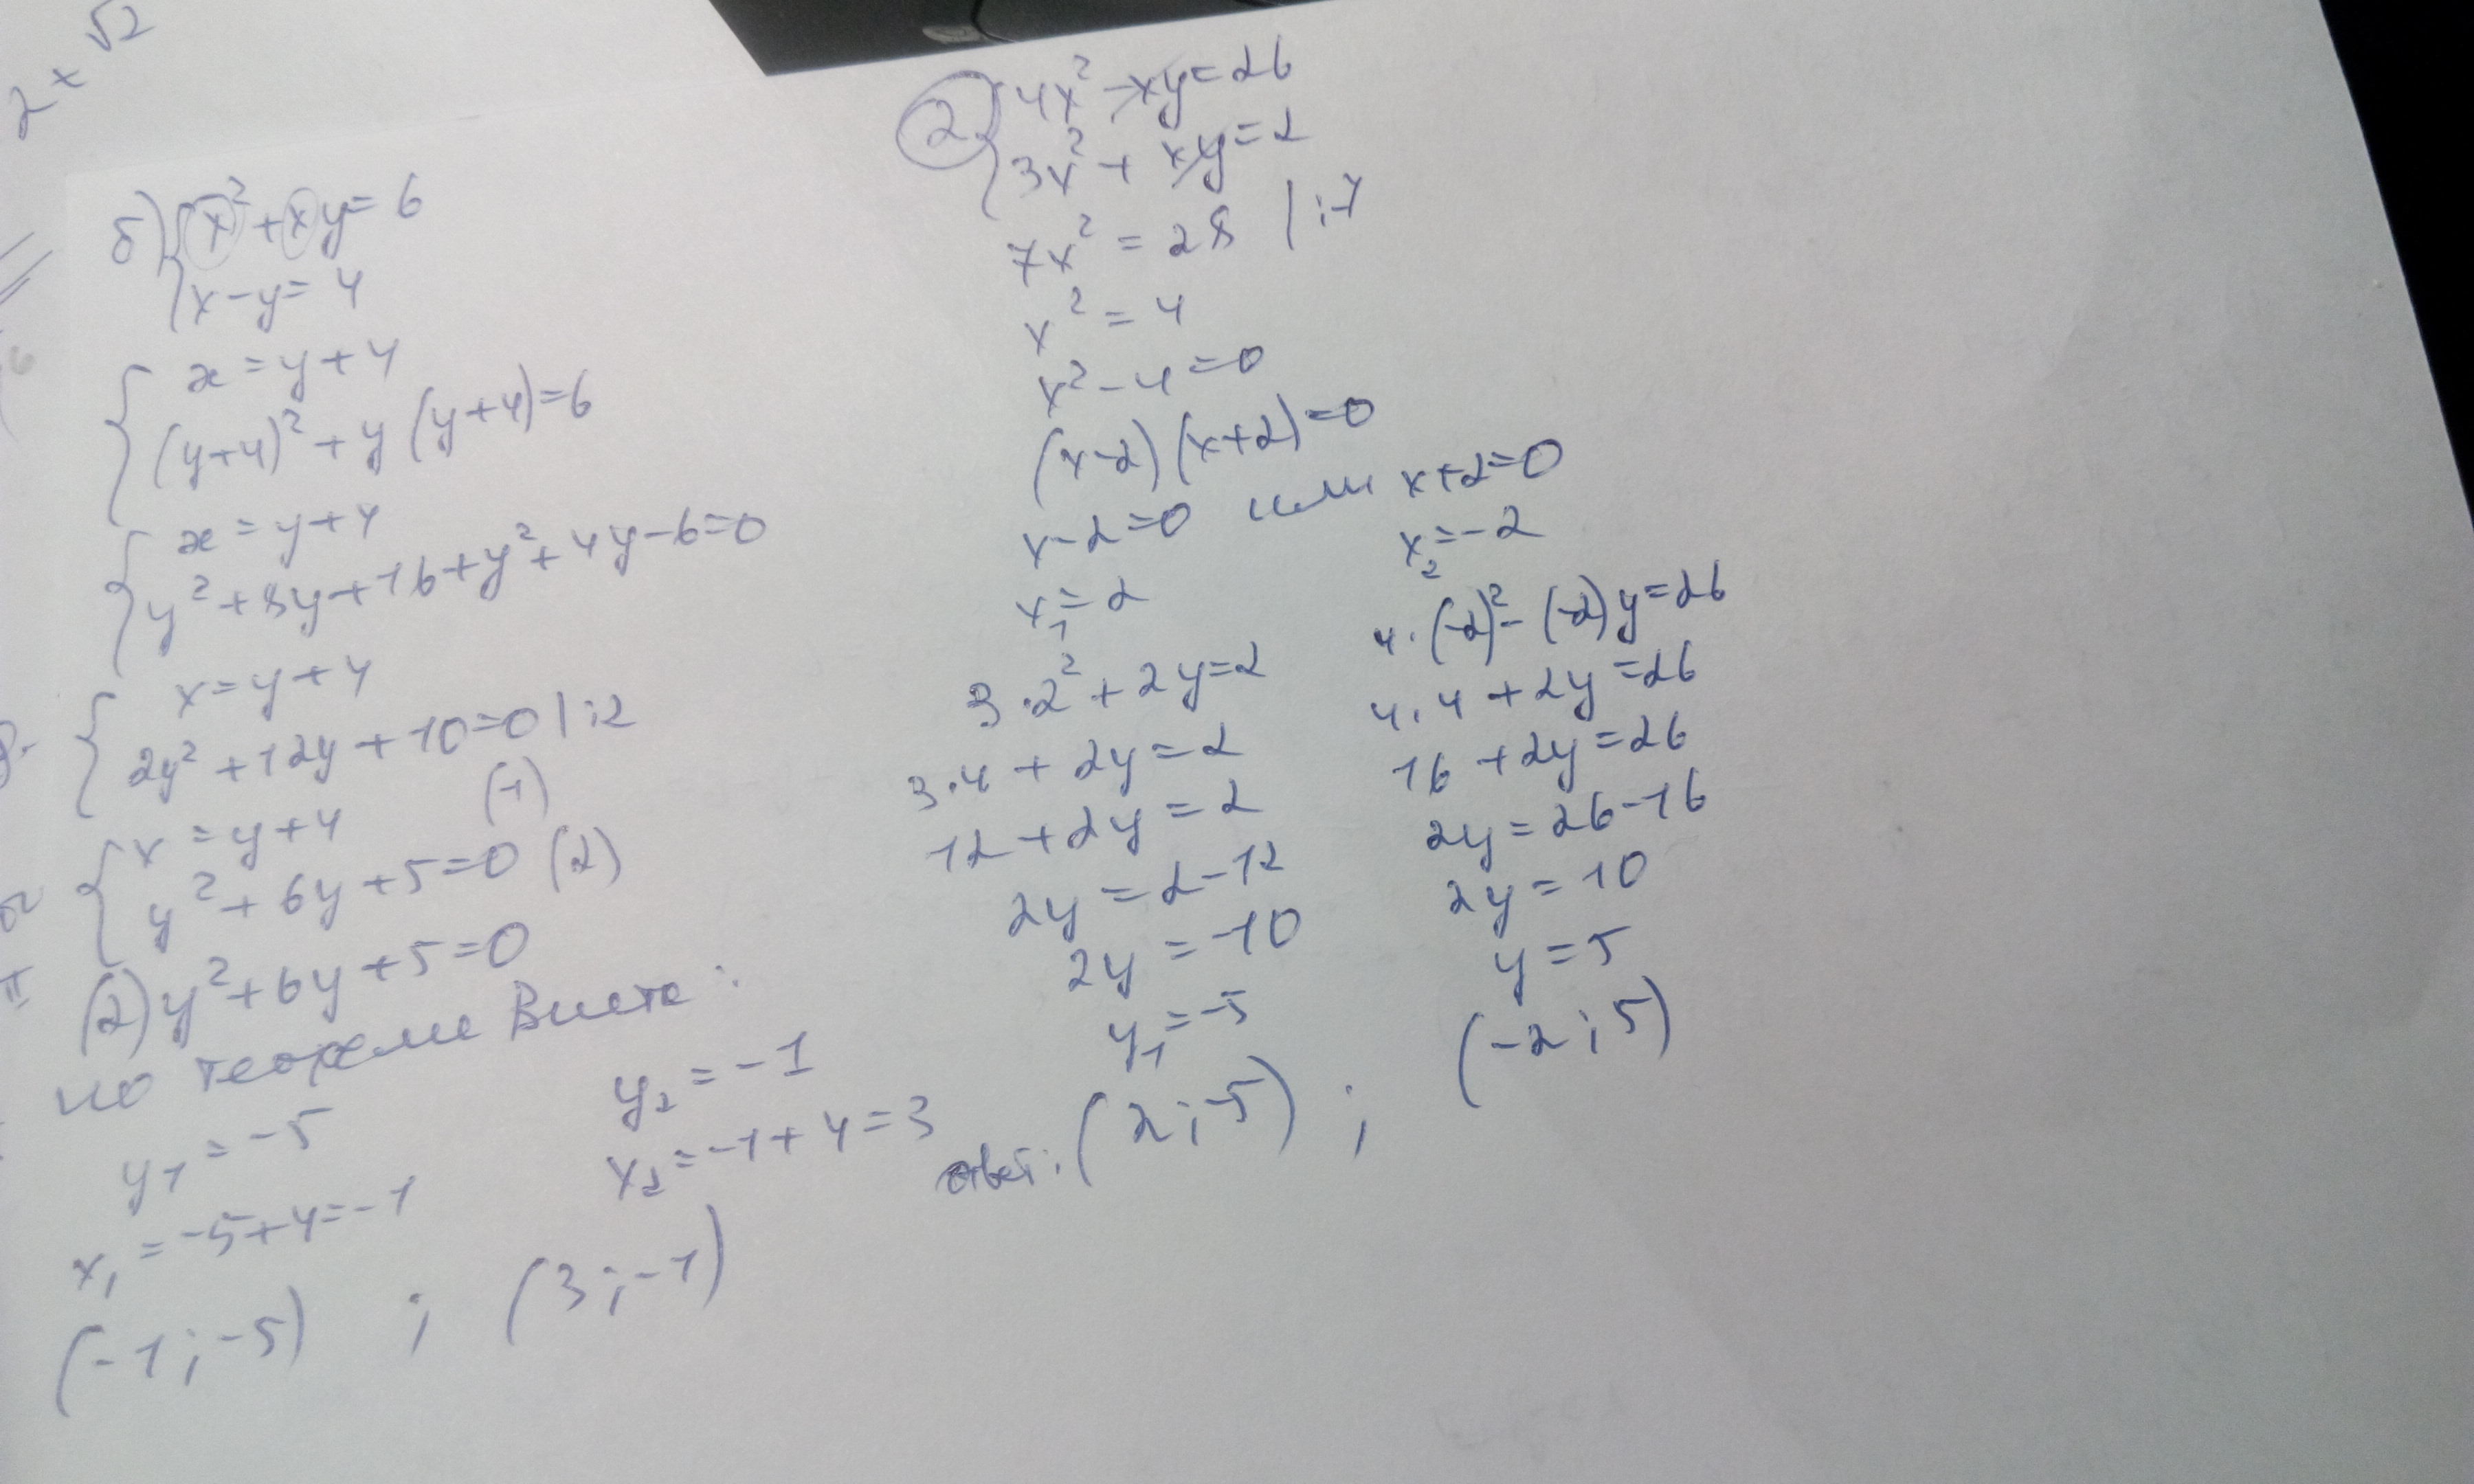 2 × √2
б) { x² + xy = 6
x - y = 4
{ x = y + 4
(y+4)² + y (y+4) = 6
{ x = y + 4
y² + 8y + 16 + y² + 4y - 6 = 0
{ x = y + 4
2y² + 12y + 10 = 0 | :2
{ x = y + 4 (1)
y² + 6y + 5 = 0 (2)
(2) y² + 6y + 5 = 0
по теореме Виета:
y₁ = -5 y₂ = -1
x₁ = -5 + 4 = -1 x₂ = -1 + 4 = 3
(-1; -5) ; (3; -1)
2 { 4x² - xy = 26
3x² + xy = 2
7x² = 28 | :7
x² = 4
x² - 4 = 0
(x-2) (x+2) = 0
x - 2 = 0 или x + 2 = 0
x₁ = 2 x₂ = -2
3 · 2² + 2y = 2
3 · 4 + 2y = 2
12 + 2y = 2
2y = 2 - 12
2y = -10
y₁ = -5
4 · (-2)² - (-2) y = 26
4 · 4 + 2y = 26
16 + 2y = 26
2y = 26 - 16
2y = 10
y = 5
ответ: (2; -5) ; (-2; 5)